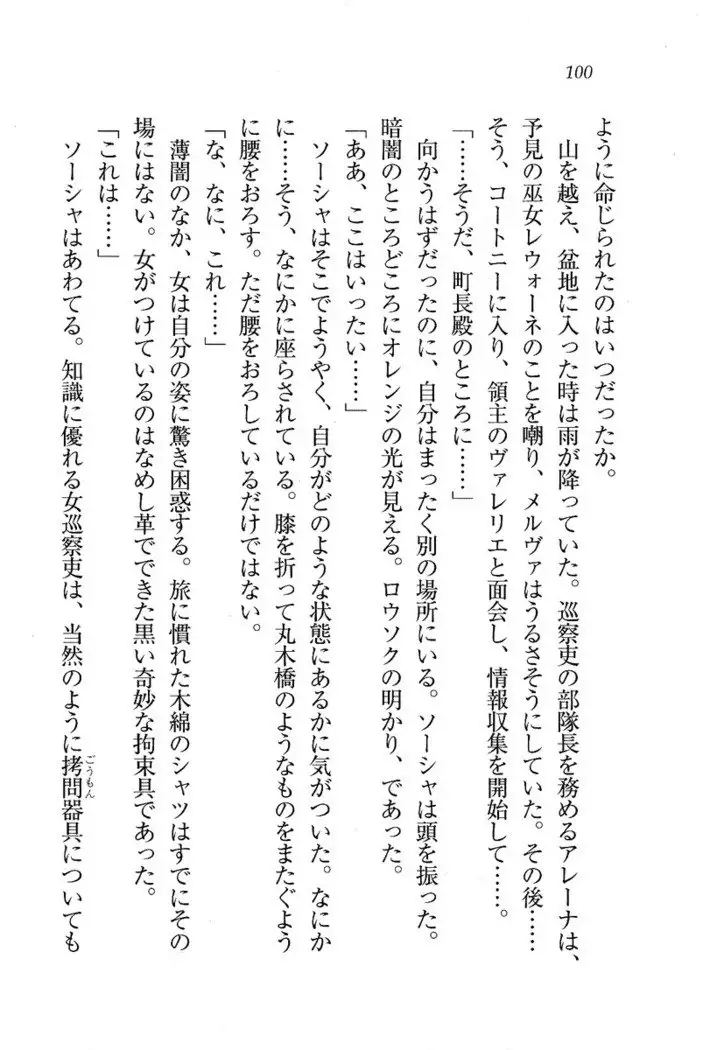 100
ように命じられたのはいつだったか。
　山を越え、盆地に入った時は雨が降っていた。巡察吏の部隊長を務めるアレーナは、
予見の巫女レウォーネのことを嘲り、メルヴァはうるさそうにしていた。その後……
そう、コートニーに入り、領主のヴァレリエと面会し、情報収集を開始して……。
「……そうだ、町長殿のところに……」
　向かうはずだったのに、自分はまったく別の場所にいる。ソーシャは頭を振った。
暗闇のところどころにオレンジの光が見える。ロウソクの明かり、であった。
「ああ、ここはいったい……」
　ソーシャはそこでようやく、自分がどのような状態にあるかに気がついた。なにか
に……そう、なにかに座らされている。膝を折って丸木橋のようなものをまたぐよう
に腰をおろす。ただ腰をおろしているだけではない。
「な、なに、これ……」
　薄闇のなか、女は自分の姿に驚き困惑する。旅に慣れた木綿のシャツはすでにその
場にはない。女がつけているのはなめし革でできた黒い奇妙な拘束具であった。
「これは……」
　ソーシャはあわてる。知識に優れる女巡察吏は、当然のように拷問器具についても
ごうもん